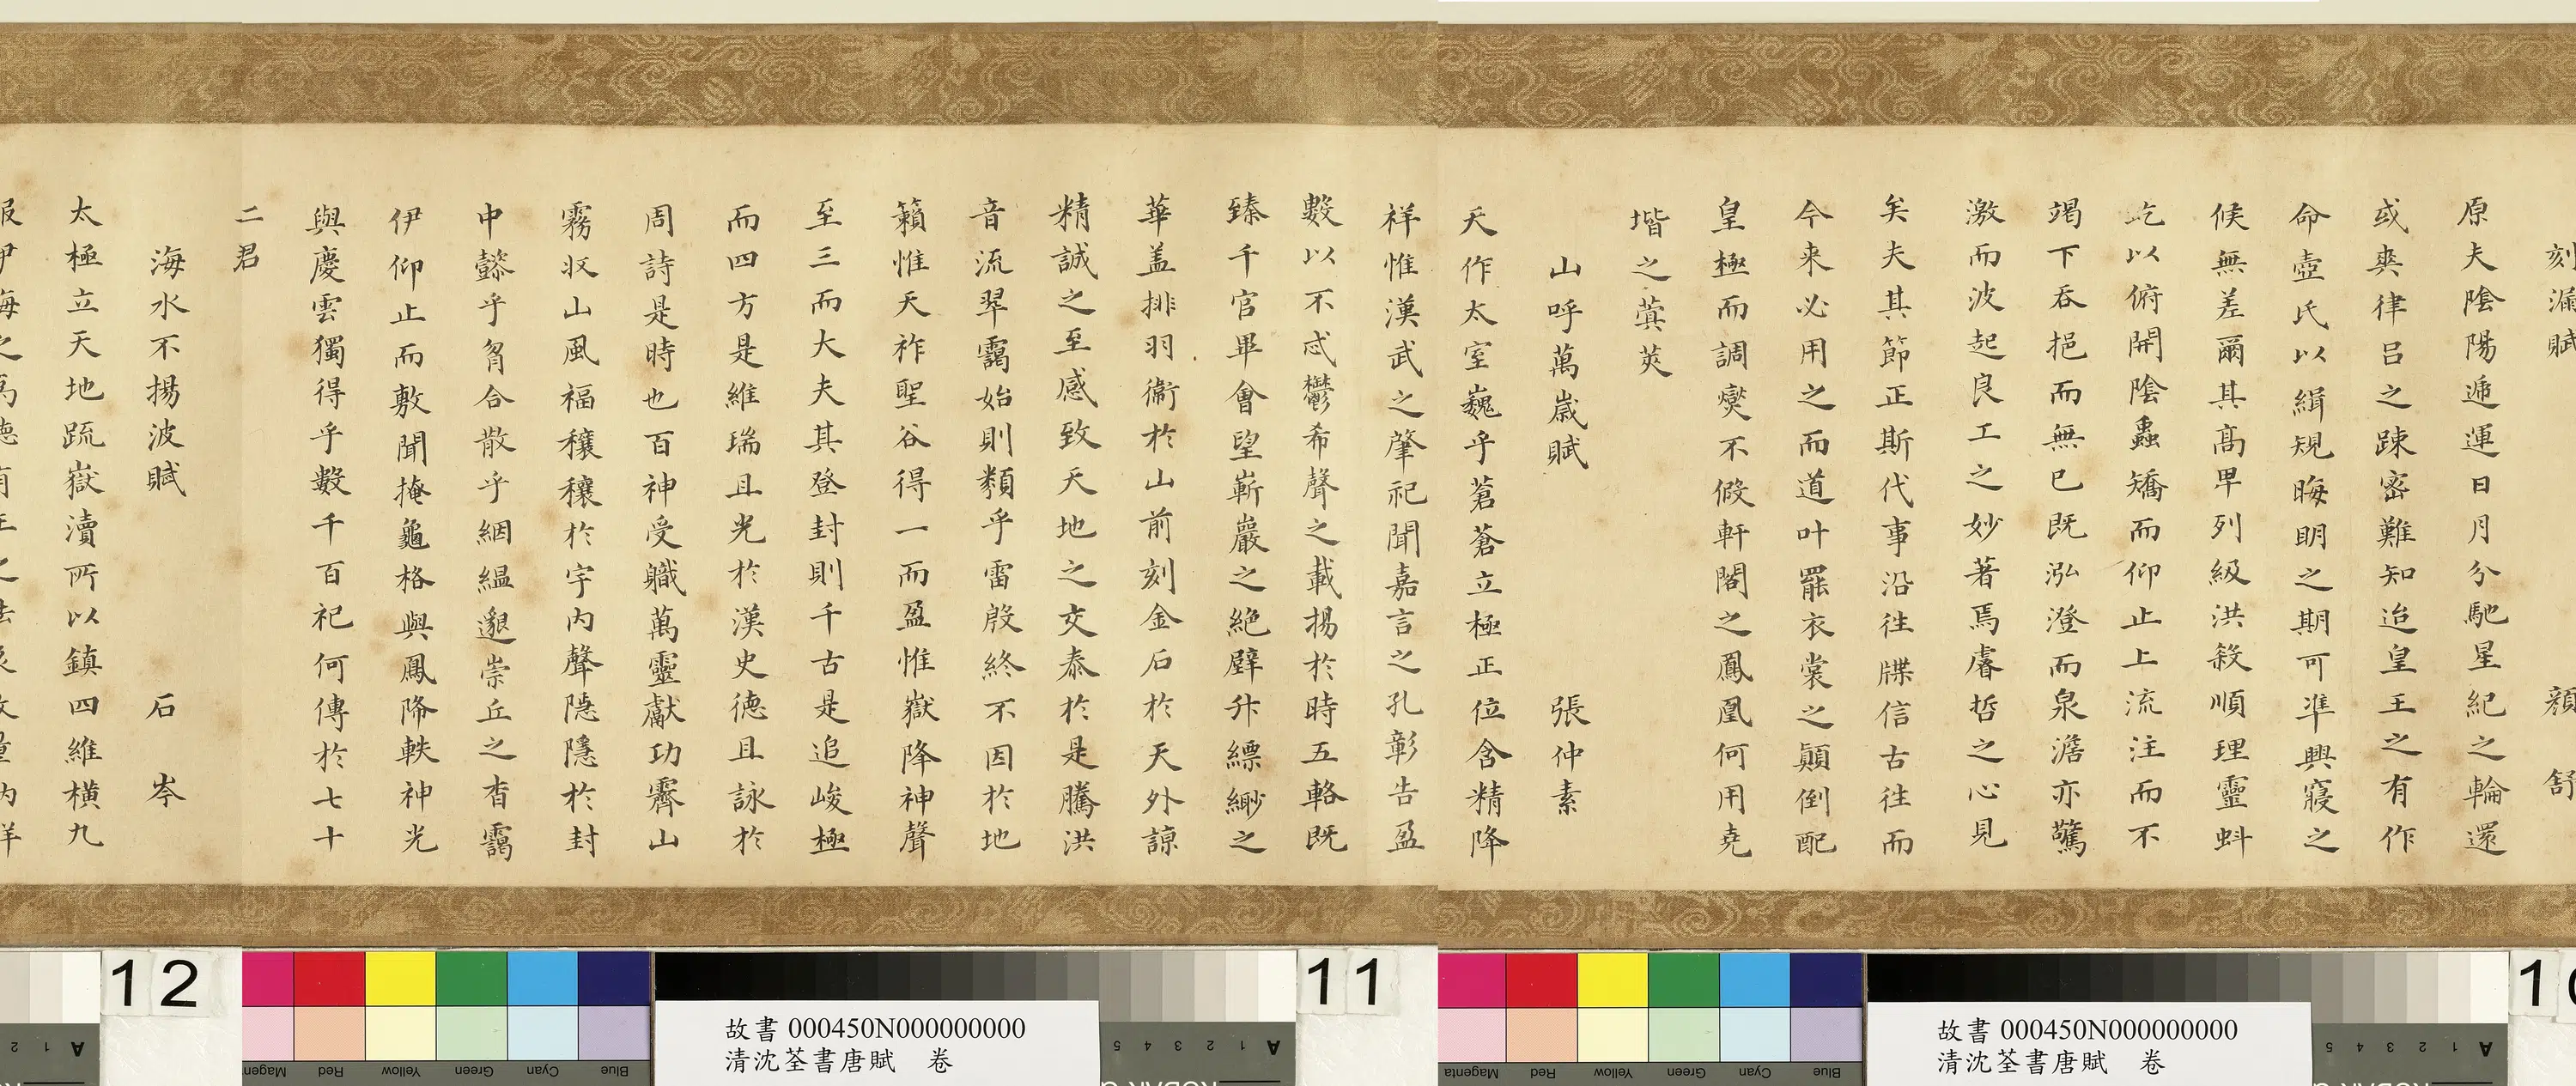 刻漏賦 顏舒
原夫陰陽遞運日月分馳星紀之輪還
或爽律呂之踈密難知迨皇王之有作
命壺氏以緝規晦明之期可準興寢之
候無差爾其高卑列級洪殺順理靈虯
屹以俯開陰蟲矯而仰止上流注而不
竭下吞挹而無已既泓澄而泉澹亦驚
激而波起良工之妙著焉睿哲之心見
矣夫其節正斯代事沿往牒信古往而
今来必用之而道叶罷衣裳之顛倒配
皇極而調爕不假軒閣之鳳凰何用堯
堦之蓂莢
山呼萬歲賦 張仲素
天作太室巍乎蒼蒼立極正位含精降
祥惟漢武之肇祀聞嘉言之孔彰告盈
數以不忒鬱希聲之載揚於時五輅既
臻千官畢會望嶄巖之絕壁升縹緲之
華盖排羽衛於山前刻金石於天外諒
精誠之至感致天地之交泰於是騰洪
音流翠靄始則類乎雷殷終不因於地
籟惟天祚聖谷得一而盈惟嶽降神聲
至三而大夫其登封則千古是追峻極
而四方是維瑞且光於漢史德且詠於
周詩是時也百神受職萬靈獻功霽山
霧収山風福穰穰於宇內聲隱隱於封
中懿乎芻合散乎絪縕邈崇丘之杳靄
伊仰止而敷聞掩龜格與鳳降軼神光
與慶雲獨得乎數千百祀何傳於七十
二君
海水不揚波賦 石岑
太極立天地疏嶽瀆所以鎮四維橫九